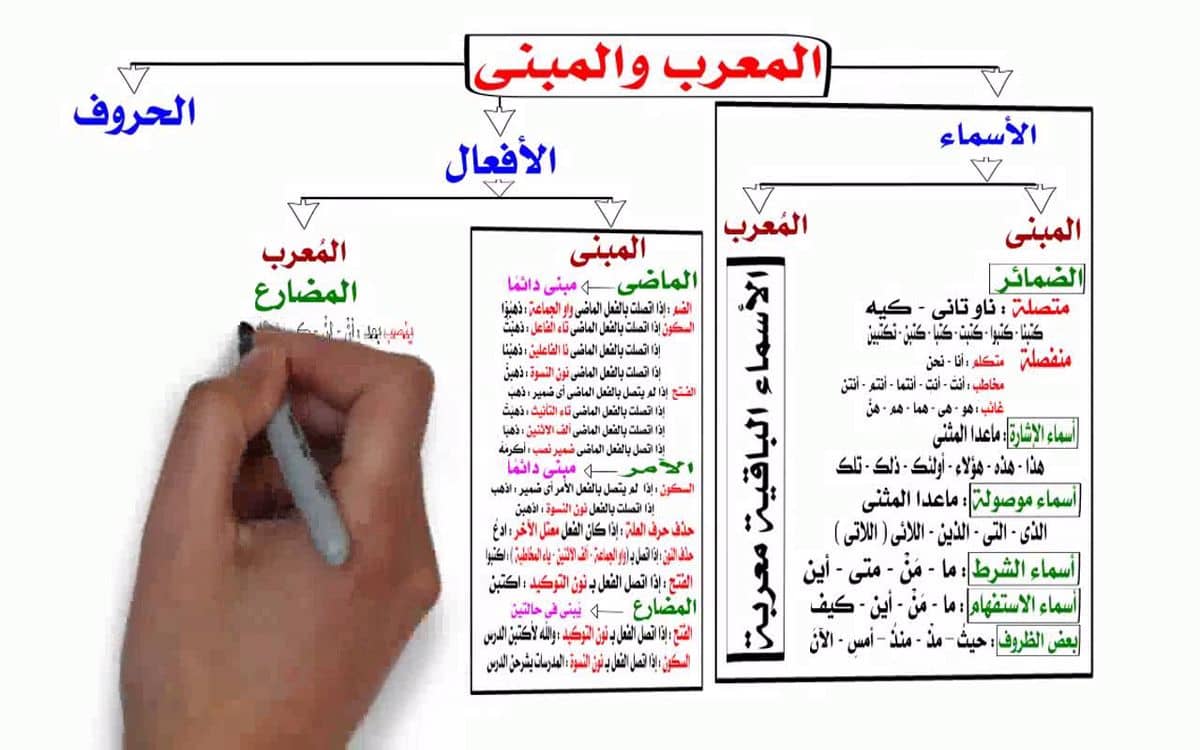 المعرب والمبنى
الأسماء
المبنى
الضمائر
متصلة : ناو تانى - كيه
كتبنا - كتبوا - كتبت - كتبا - كتبن - تكتبين
منفصلة متكلم : أنا - نحن
مخاطب : أنتَ - أنتِ - أنتما - أنتم - أنتن
غائب : هو - هى - هما - هم - هنَّ
أسماء الإشارة : ماعدا المثنى
هذا - هذه - هؤلاء - أولئك - ذلك - تلك
أسماء موصولة : ماعدا المثنى
الذى - التى - الذين - اللائى ( اللاتى )
أسماء الشرط : ما - مَنْ - متى - أين
أسماء الاستفهام : ما - مَنْ - أين - كيف
بعض الظروف : حيثُ - مذْ - منذُ - أمسِ - الآنَ
المُعرب
الأسماء الباقية معربة
الأفعال
المبنى
الماضى مبنى دائمًا
الضم : إذا اتصلت بالفعل الماضى واو الجماعة : ذهبُوا
السكون : إذا اتصلت بالفعل الماضى تاء الفاعل : ذهبْت
إذا اتصلت بالفعل الماضى نا الفاعلين : ذهبْنا
إذا اتصلت بالفعل الماضى نون النسوة : ذهبْن
الفتح إذا لم يتصل بالفعل الماضى أى ضمير : ذهبَ
إذا اتصلت بالفعل الماضى تاء التأنيث : ذهبَت
إذا اتصلت بالفعل الماضى ألف الاثنين : ذهبا
إذا اتصل بالفعل الماضى ضمير نصب : أكرمَه
الأمر مبنى دائمًا
السكون : إذا لم يتصل بالفعل الأمر أى ضمير : اذهب
إذا اتصلت بالفعل نون النسوة : اذهبن
حذف حرف العلة : إذا كان الفعل معتل الآخر : ادعُ
حذف النون : إذا اتصل بـ (واو الجماعة - ألف الاثنين - ياء المخاطبة ) : اكتبوا
الفتح : إذا اتصل الفعل بـ نون التوكيد : اكتبن
المضارع يُبنى فى حالتين
الفتح : إذا اتصل الفعل بـ نون التوكيد : والله لأكتبن الدرس
السكون : إذا اتصل الفعل بـ نون النسوة : المدرسات يشرحن الدرس
المُعرب
المضارع
ينصب بعد : أن - لن
الحروف